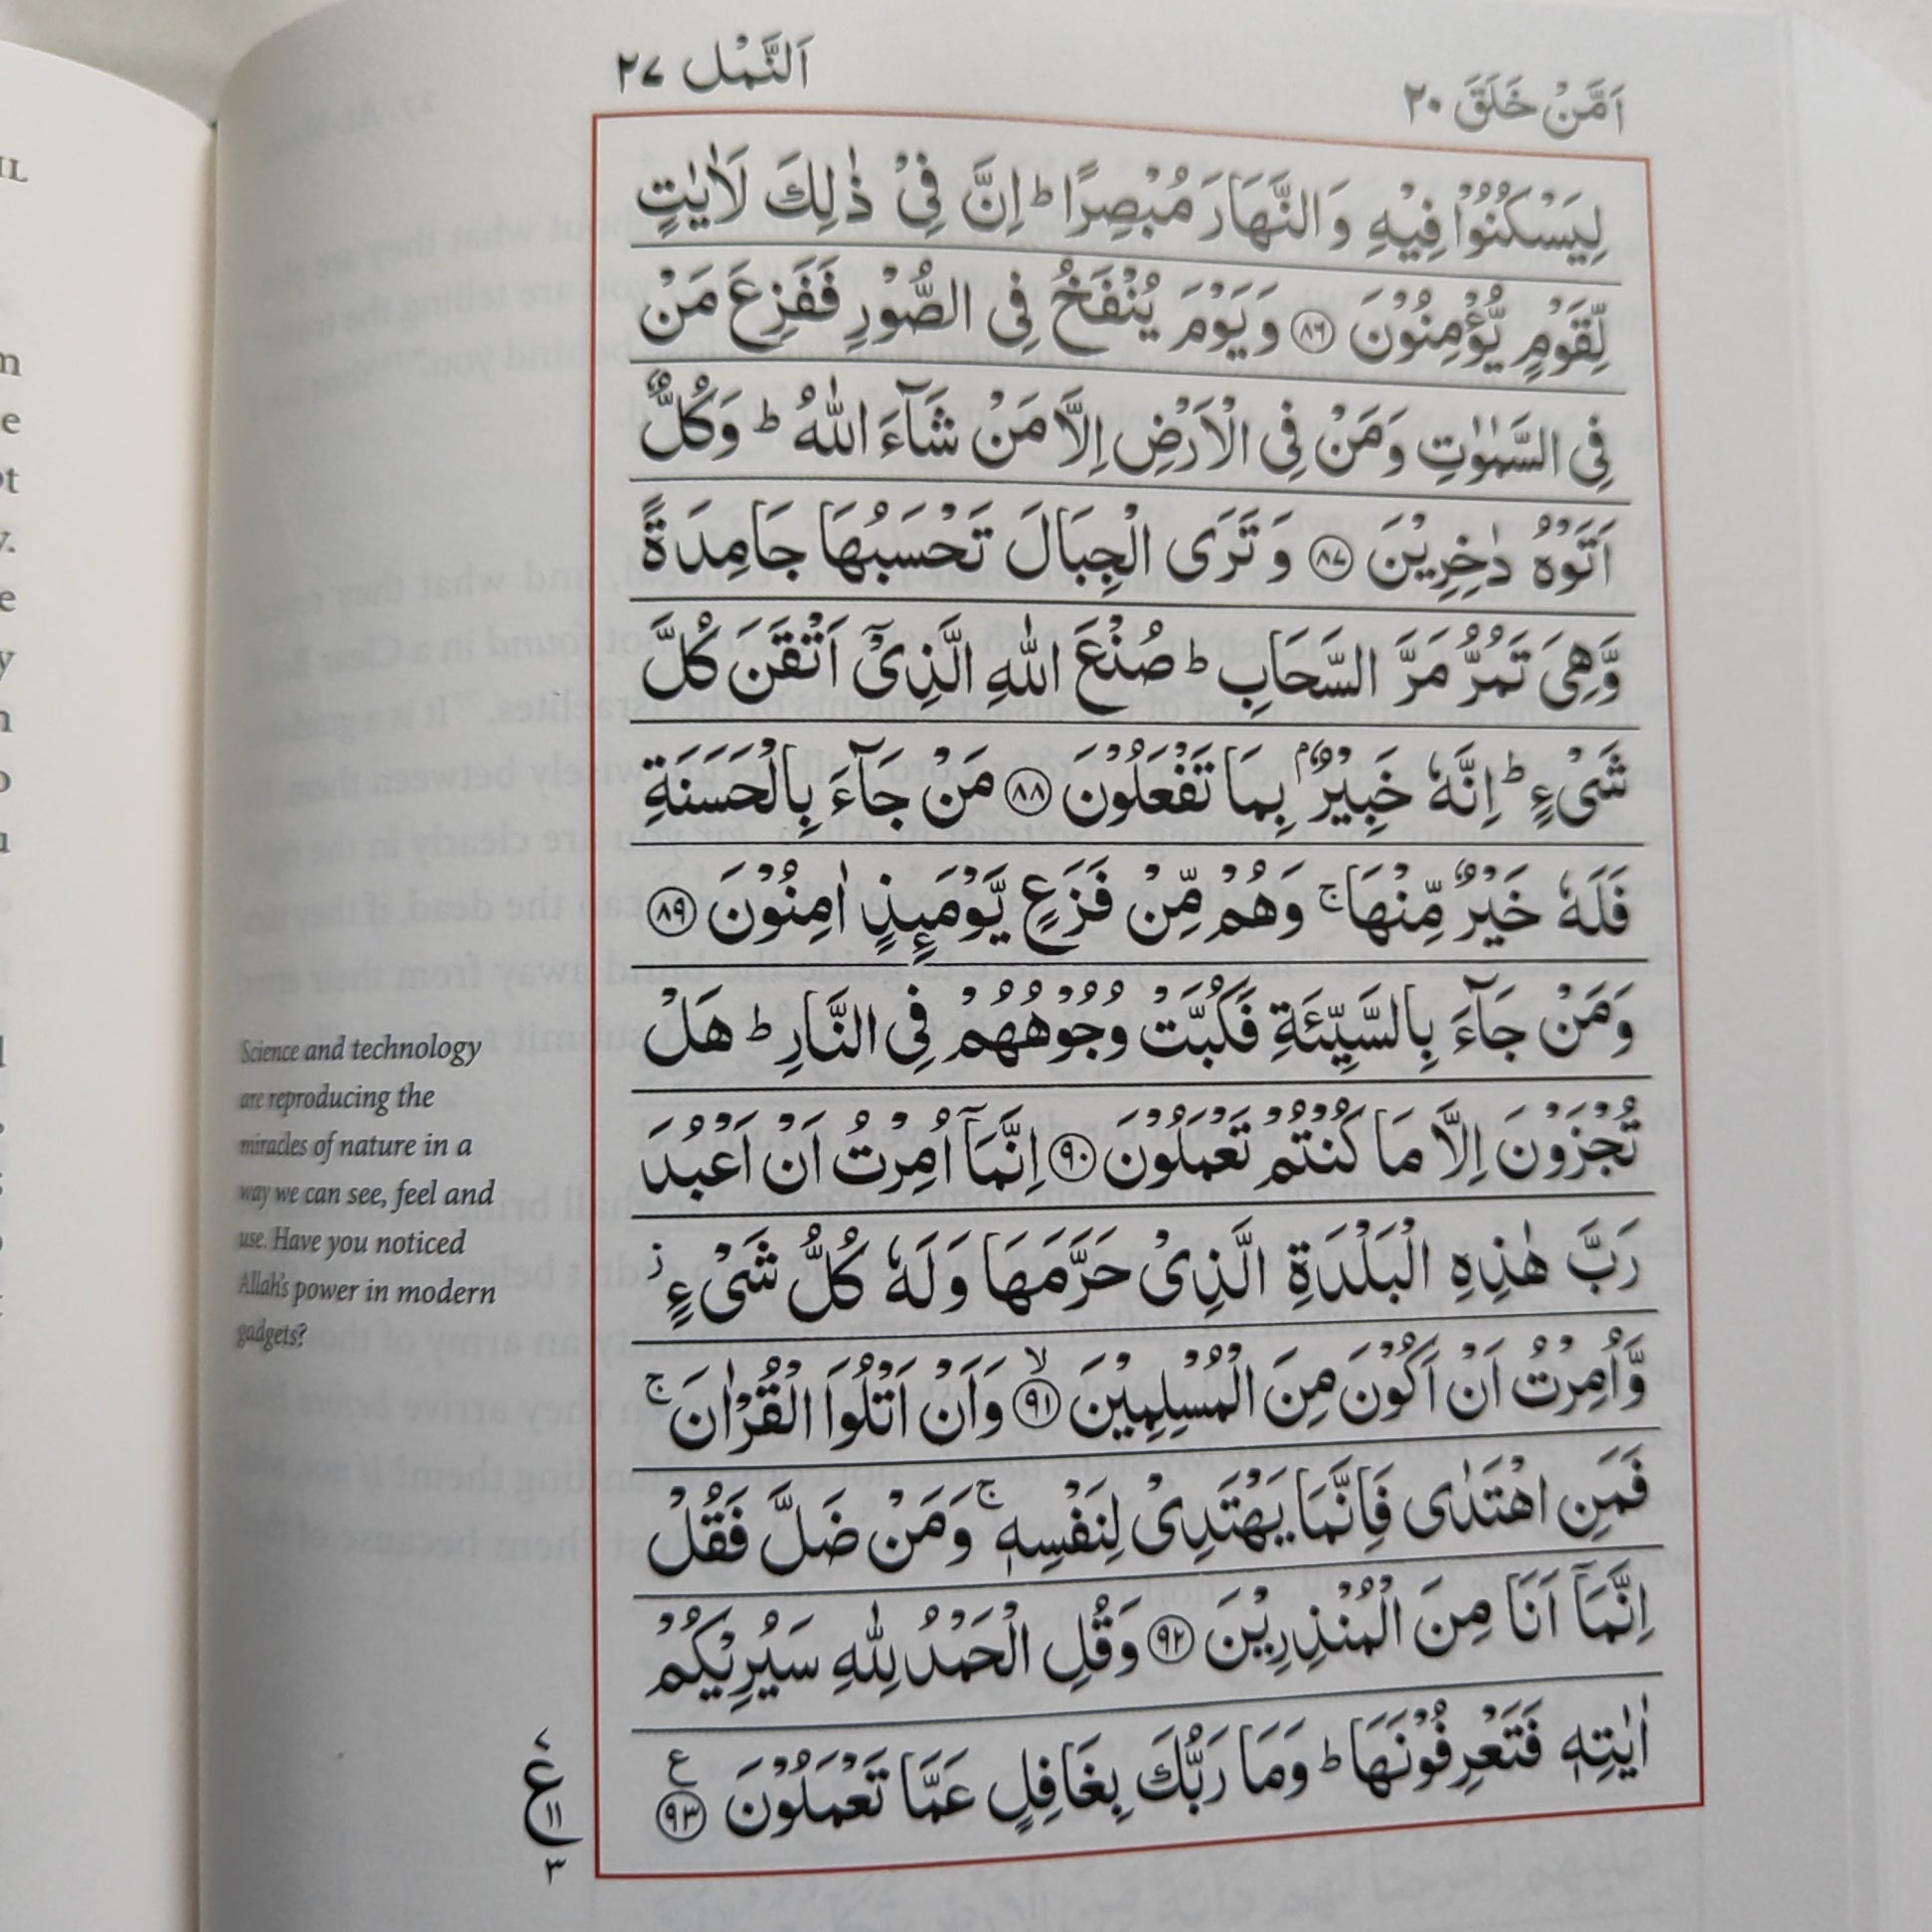 اَلنَّمْل ٢٧
اَمَّنْ خَلَقَ ٢٠
لِيَسْكُنُوْا فِيْهِ وَالنَّهَارَ مُبْصِرًا ؕ اِنَّ فِيْ ذٰلِكَ لَاٰيٰتٍ
لِّقَوْمٍ يُّؤْمِنُوْنَ ﴿٨٦﴾ وَيَوْمَ يُنْفَخُ فِى الصُّوْرِ فَفَزِعَ مَنْ
فِى السَّمٰوٰتِ وَمَنْ فِى الْاَرْضِ اِلَّا مَنْ شَآءَ اللّٰهُ ؕ وَكُلٌّ
اَتَوْهُ دٰخِرِيْنَ ﴿٨٧﴾ وَ تَرَى الْجِبَالَ تَحْسَبُهَا جَامِدَةً
وَّهِىَ تَمُرُّ مَرَّ السَّحَابِ ؕ صُنْعَ اللّٰهِ الَّذِىْۤ اَتْقَنَ كُلَّ
شَىْءٍ ؕ اِنَّهٗ خَبِيْرٌۢ بِمَا تَفْعَلُوْنَ ﴿٨٨﴾ مَنْ جَآءَ بِالْحَسَنَةِ
فَلَهٗ خَيْرٌ مِّنْهَا ۚ وَهُمْ مِّنْ فَزَعٍ يَّوْمَىِٕذٍ اٰمِنُوْنَ ﴿٨٩﴾
وَمَنْ جَآءَ بِالسَّيِّئَةِ فَكُبَّتْ وُجُوْهُهُمْ فِى النَّارِ ؕ هَلْ
تُجْزَوْنَ اِلَّا مَا كُنْتُمْ تَعْمَلُوْنَ ﴿٩٠﴾ اِنَّمَاۤ اُمِرْتُ اَنْ اَعْبُدَ
رَبَّ هٰذِهِ الْبَلْدَةِ الَّذِىْ حَرَّمَهَا وَلَهٗ كُلُّ شَىْءٍ ز
وَّاُمِرْتُ اَنْ اَكُوْنَ مِنَ الْمُسْلِمِيْنَ ۙ﴿٩١﴾ وَاَنْ اَتْلُوَا الْقُرْاٰنَ ۚ
فَمَنِ اهْتَدٰى فَاِنَّمَا يَهْتَدِىْ لِنَفْسِهٖ ۚ وَمَنْ ضَلَّ فَقُلْ
اِنَّمَاۤ اَنَا مِنَ الْمُنْذِرِيْنَ ﴿٩٢﴾ وَقُلِ الْحَمْدُ لِلّٰهِ سَيُرِيْكُمْ
اٰيٰتِهٖ فَتَعْرِفُوْنَهَا ؕ وَمَا رَبُّكَ بِغَافِلٍ عَمَّا تَعْمَلُوْنَ ﴿٩٣﴾ ع
Science and technology
are reproducing the
miracles of nature in a
way we can see, feel and
use. Have you noticed
Allah's power in modern
gadgets?
٧
ع
١١
٣